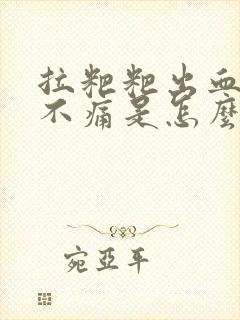 拉粑粑出血
不痛是怎麼
宛亞平